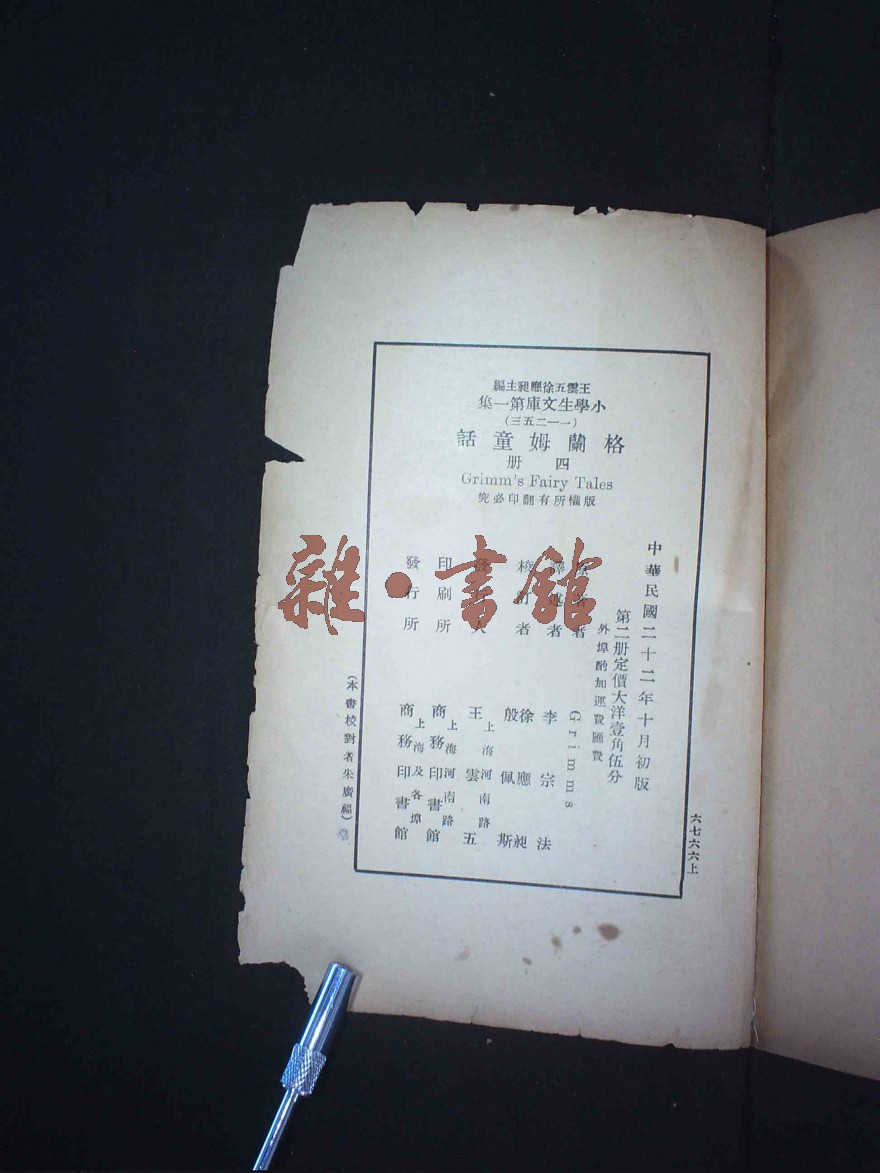 王雲五徐應昶主編
小學生文庫第一集
(一—二五三)
格蘭姆童話
四册
Grimm's Fairy Tales
版權所有翻印必究
中華民國二十二年十月初版
第二册定價大洋壹角伍分
外埠酌加運費匯費
原著者 Grimms
譯述者 李宗法
校訂者 徐應昶
殷佩斯
發行人 上海河南路
王雲五
印刷所 上海河南路
商務印書館
發行所 上海及各埠
商務印書館
(本書校對者朱廣福)
六七六六上
雜·書館